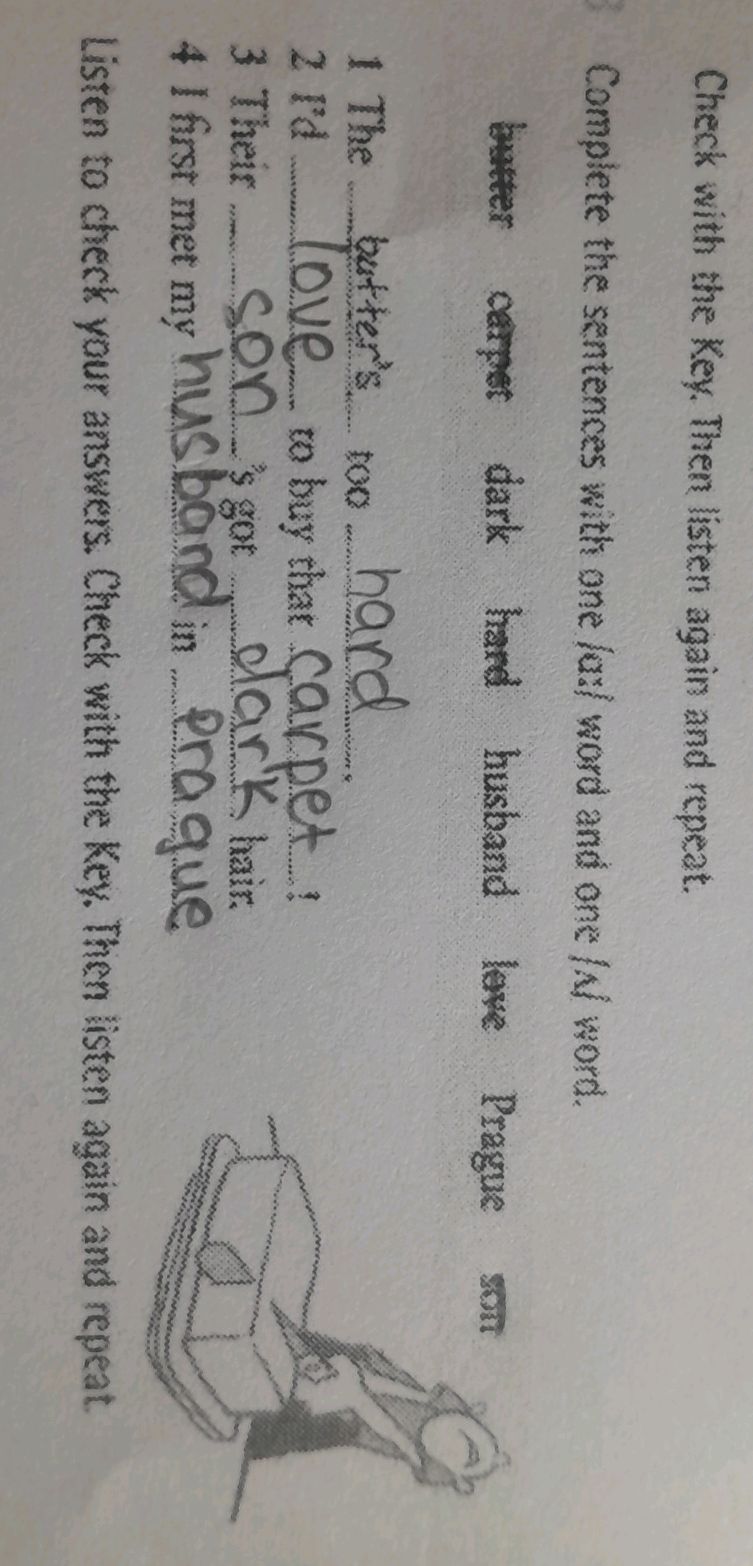 Check with the Key. Then listen again and repeat.
3 Complete the sentences with one /ɑː/ word and one /ʌ/ word.
butter carpet dark hard husband love Prague son
1 The butter's too hard.
2 I'd love to buy that carpet!
3 Their son's got dark hair.
4 I first met my husband in Prague
Listen to check your answers. Check with the Key. Then listen again and repeat